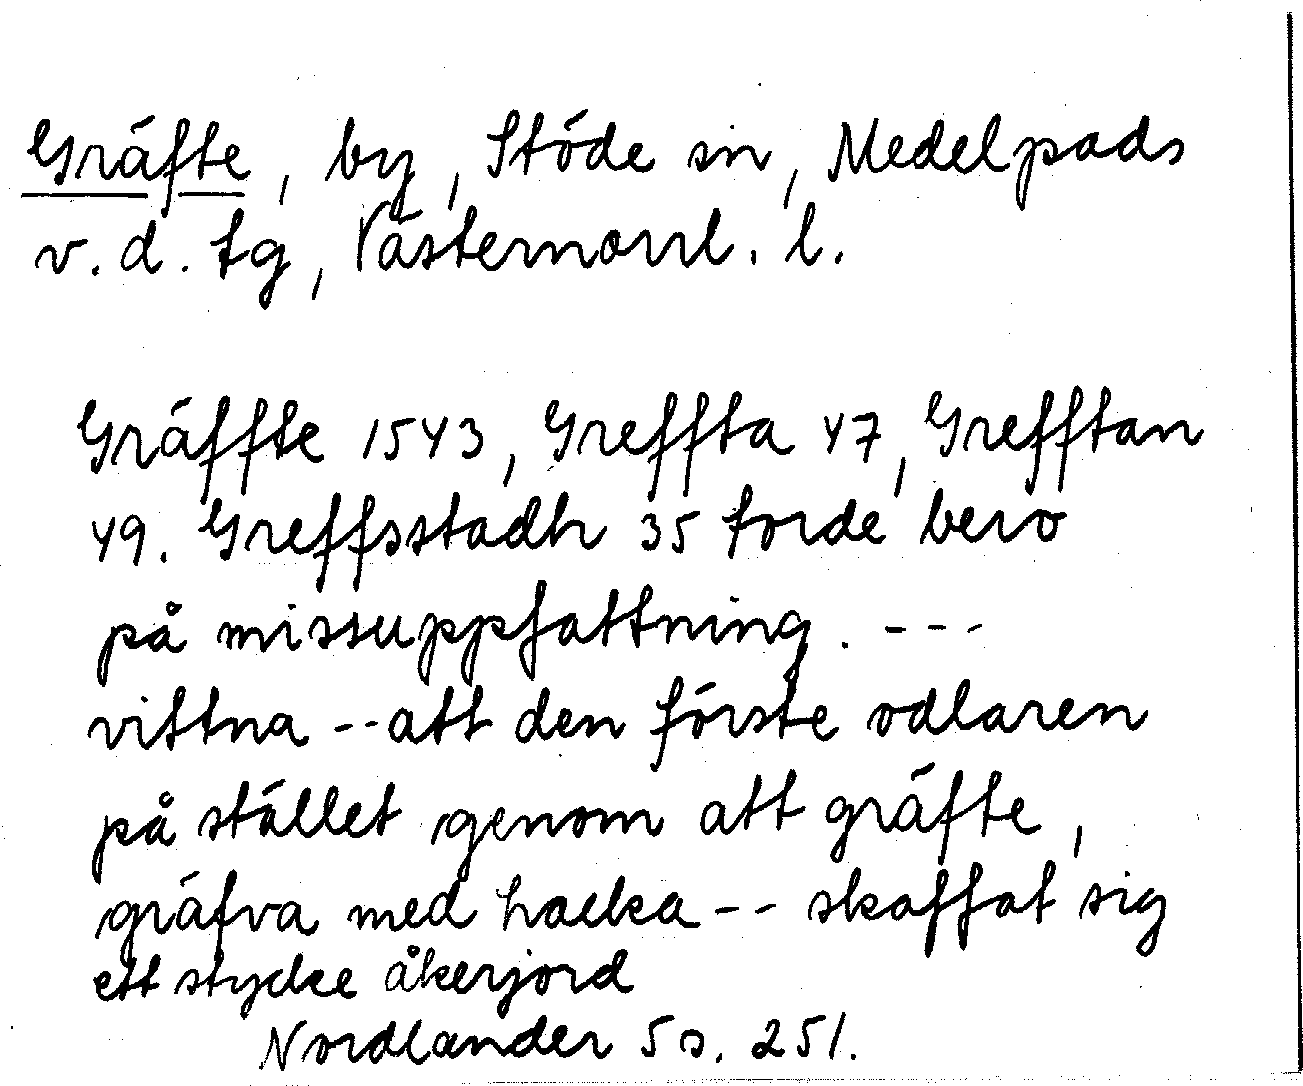 Gräfte, by, Stöde sn, Medelpads
v. d. tg, Västernorrl. l.
Gräffte 1543, Greffta 47, Grefftan
49. Greffsstadh 35 torde bero
på missuppfattning. ---
vittna -- att den förste odlaren
på stället genom att gräfte,
gräfva med hacka -- skaffat sig
ett stycke åkerjord
Nordlander 5 s. 251.